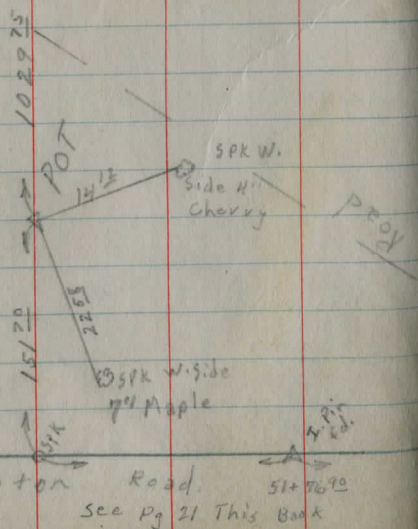 1029 25
POT
14 12
SPK W.
Side 4"
Cherry
Road
22 58
151 20
SPK W. Side
7" Maple
SPK
I. Pi.
ton Road.
51+76 90
See Pg 21 This Book